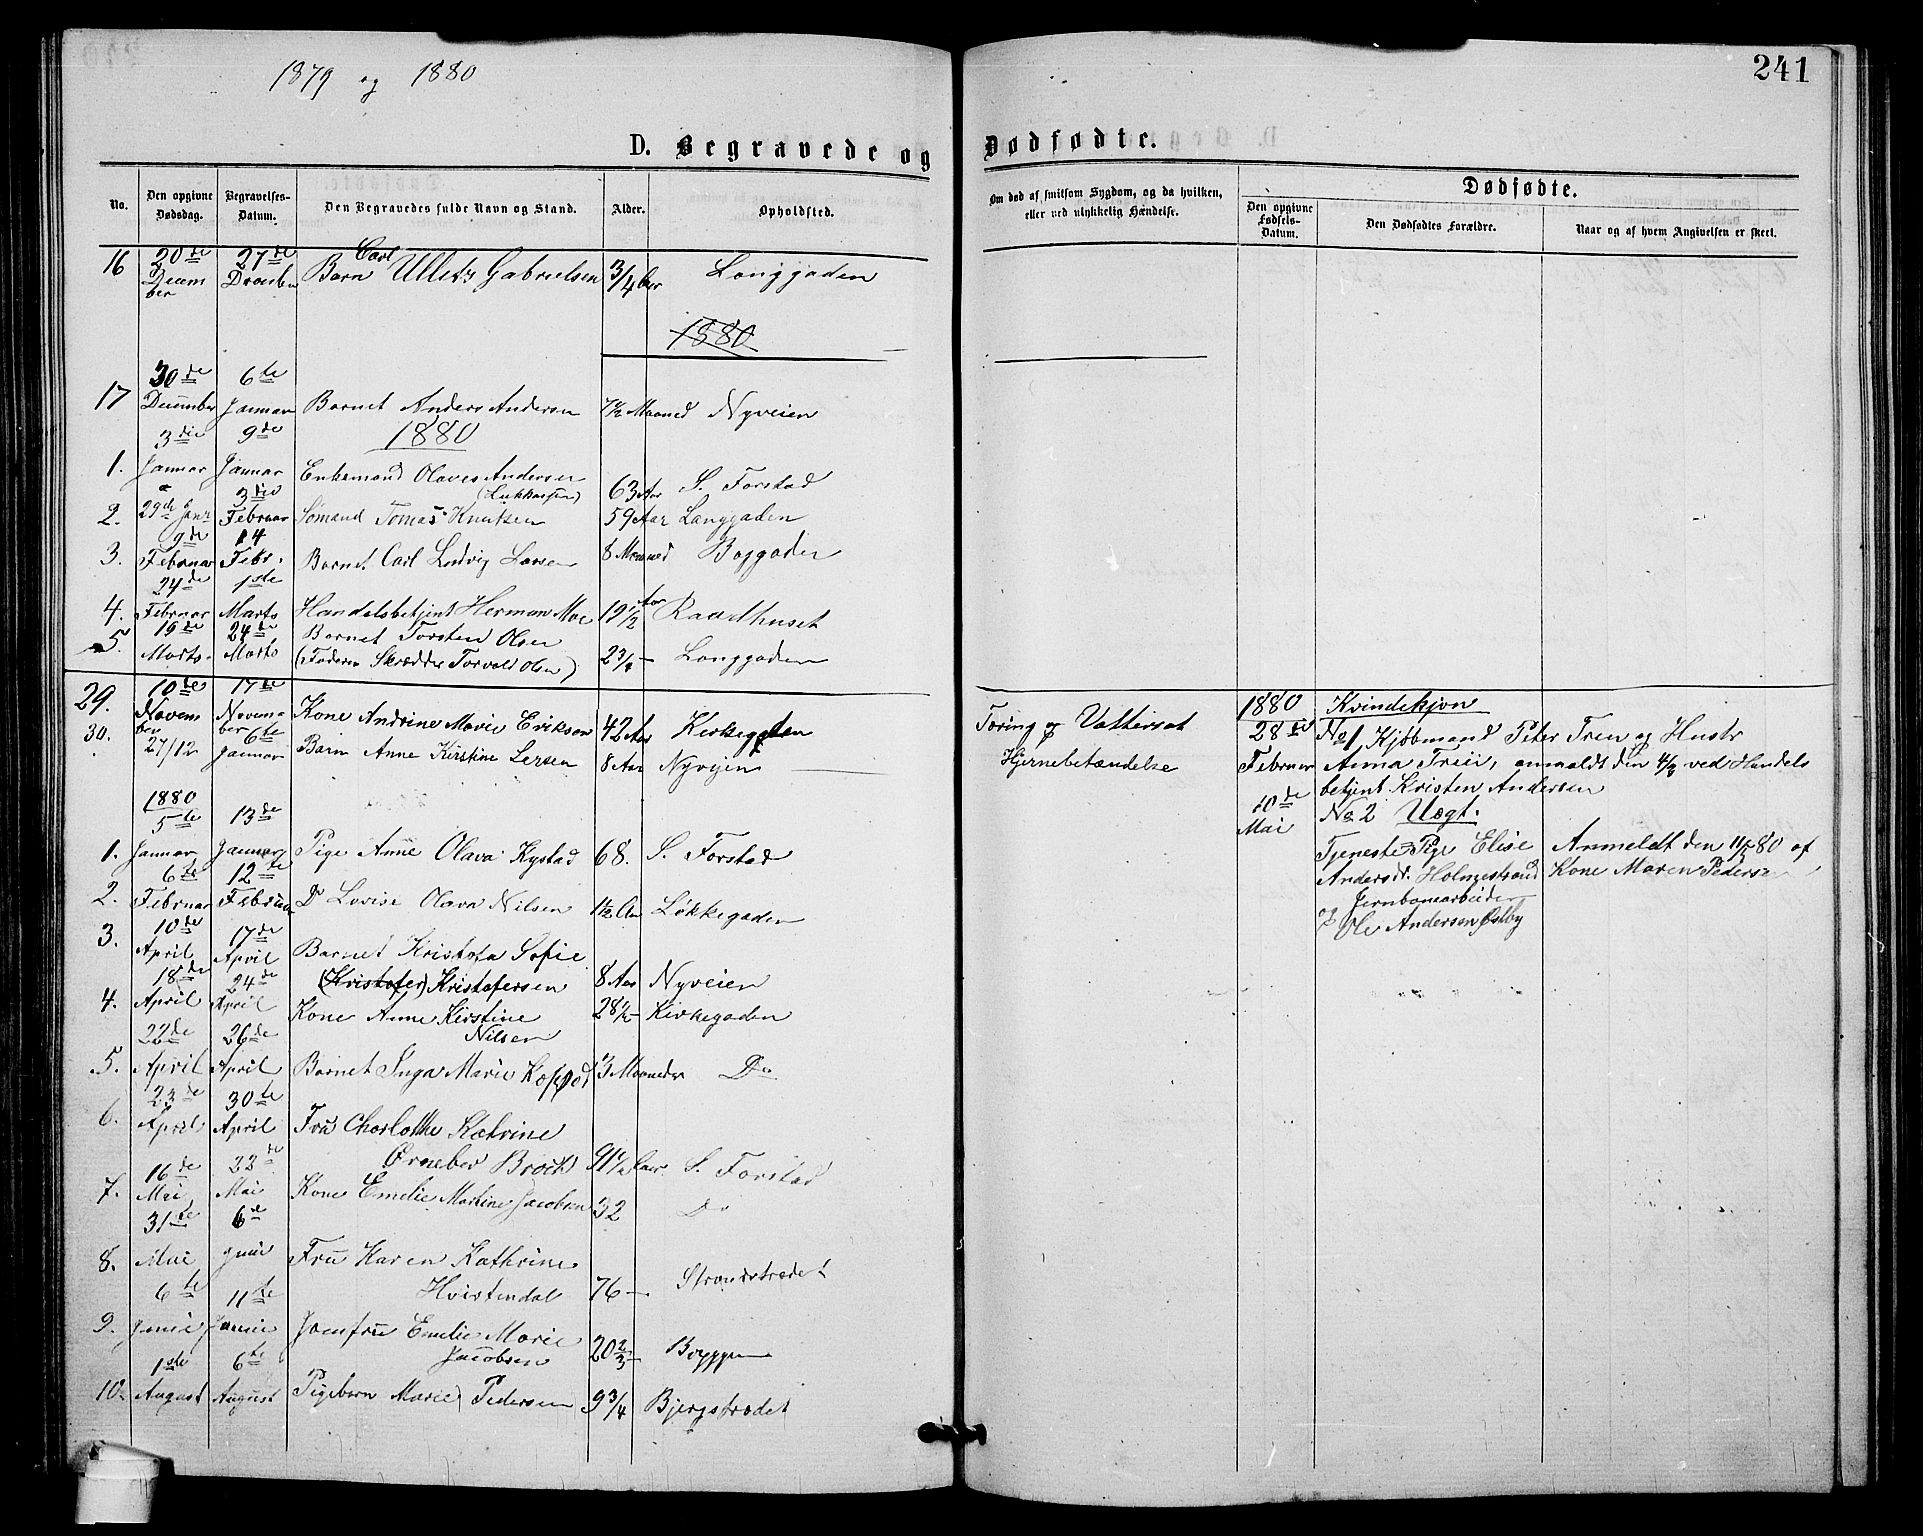 1879 og 1880
241
D. Begravede og Dødfødte.
No.
Den opgivne Dødsdag.
Begravelses-Datum.
Den Begravedes fulde Navn og Stand.
Alder.
Opholdsted.
Om død af smitsom Sygdom, og da hvilken, eller ved ulykkelig Hændelse.
Dødfødte.
Den opgivne Fødsels-Datum.
Den Dødfødtes Forældre.
Naar og af hvem Angivelsen er skeet.
16 20de December 27de Barn Carl Gabrielsen 3/4 Langgaden
1880
17 30de December 6te Januar Barnet Anders Andersen Maaned Nyveien
1880
1. 3die Januar 9de Januar Enkemand Olaves Andersen 63 Aar S. Forstad
2. 29de Janr 3die Februar Sømand Tomas Knutsen 59 Aar Langgaden
3. 9de Februar 14 Febr. Barnet Carl Ludvig Larsen 8 Maaned
4. 24de Februar 1ste Marts Handelsbetjent Herman Moe 19 1/2 Aar Raadhuset
5. 19de Marts 24de Marts Barnet Torsten Olsen
(Faderen Skrædder Torvald Olsen) 2 3/4 — Langgaden
29. 10de November 17de November Kone Andrine Marie Eriksen 42 Aar Kirkegaden Tæring og Vattersot
30. 27/12 6te Januar Barn Anne Kirstine Larsen 8 Aar Nyvejen Hjernebetændelse
1880
1. 5te Januar 13de Januar Pige Anne Olava Rystad 68. S. Forstad
2. 6te Februar 12te Februar Do Lovise Olava Nilsen 1 1/2 Aar Løkkegaden
3. 10de April 17de April Barnet Kristofa Sofie
(Kristofer) Kristofersen 8 Aar Nyveien
4. 18de April 24de April Kone Anne Kirstine
Nilsen 28 1/2 — Kirkegaden
5. 22de April 26de April Barnet Inga Marie 1/3 Maaneder Do
6. 23de April 30te April Fru Charlotte Katrine
Brock 91 1/2 Aar S. Forstad
7. 16de Mai 22de Mai Kone Emelie Martine Jacobsen 32 Do
8. 31te Mai 6te Juni Fru Karen Kathrine
Hvistendal 76 — Strandstrædet
9. 6te Juni 11te Junie Jomfru Emelie Marie
Jacobsen 20 2/3 —
10. 1ste August 6te August Pigebarn Marie Pedersen 9 3/4 Bjergstrædet
1880 Kvindekjøn
28de Februar No 1, Kjøbmand Peter Tren og Hustr
Anna Treii, anmeldt den 4/3 ved Handels
betjent Kristen Andersen
10de Mai No 2 Uegt.
Tjeneste Pige Elise Anmeldt den 11/5 80 af
Andersdr. Holmestrand Kone Maren Pederse
Jernbanearbeider
Ole Andersen Østby